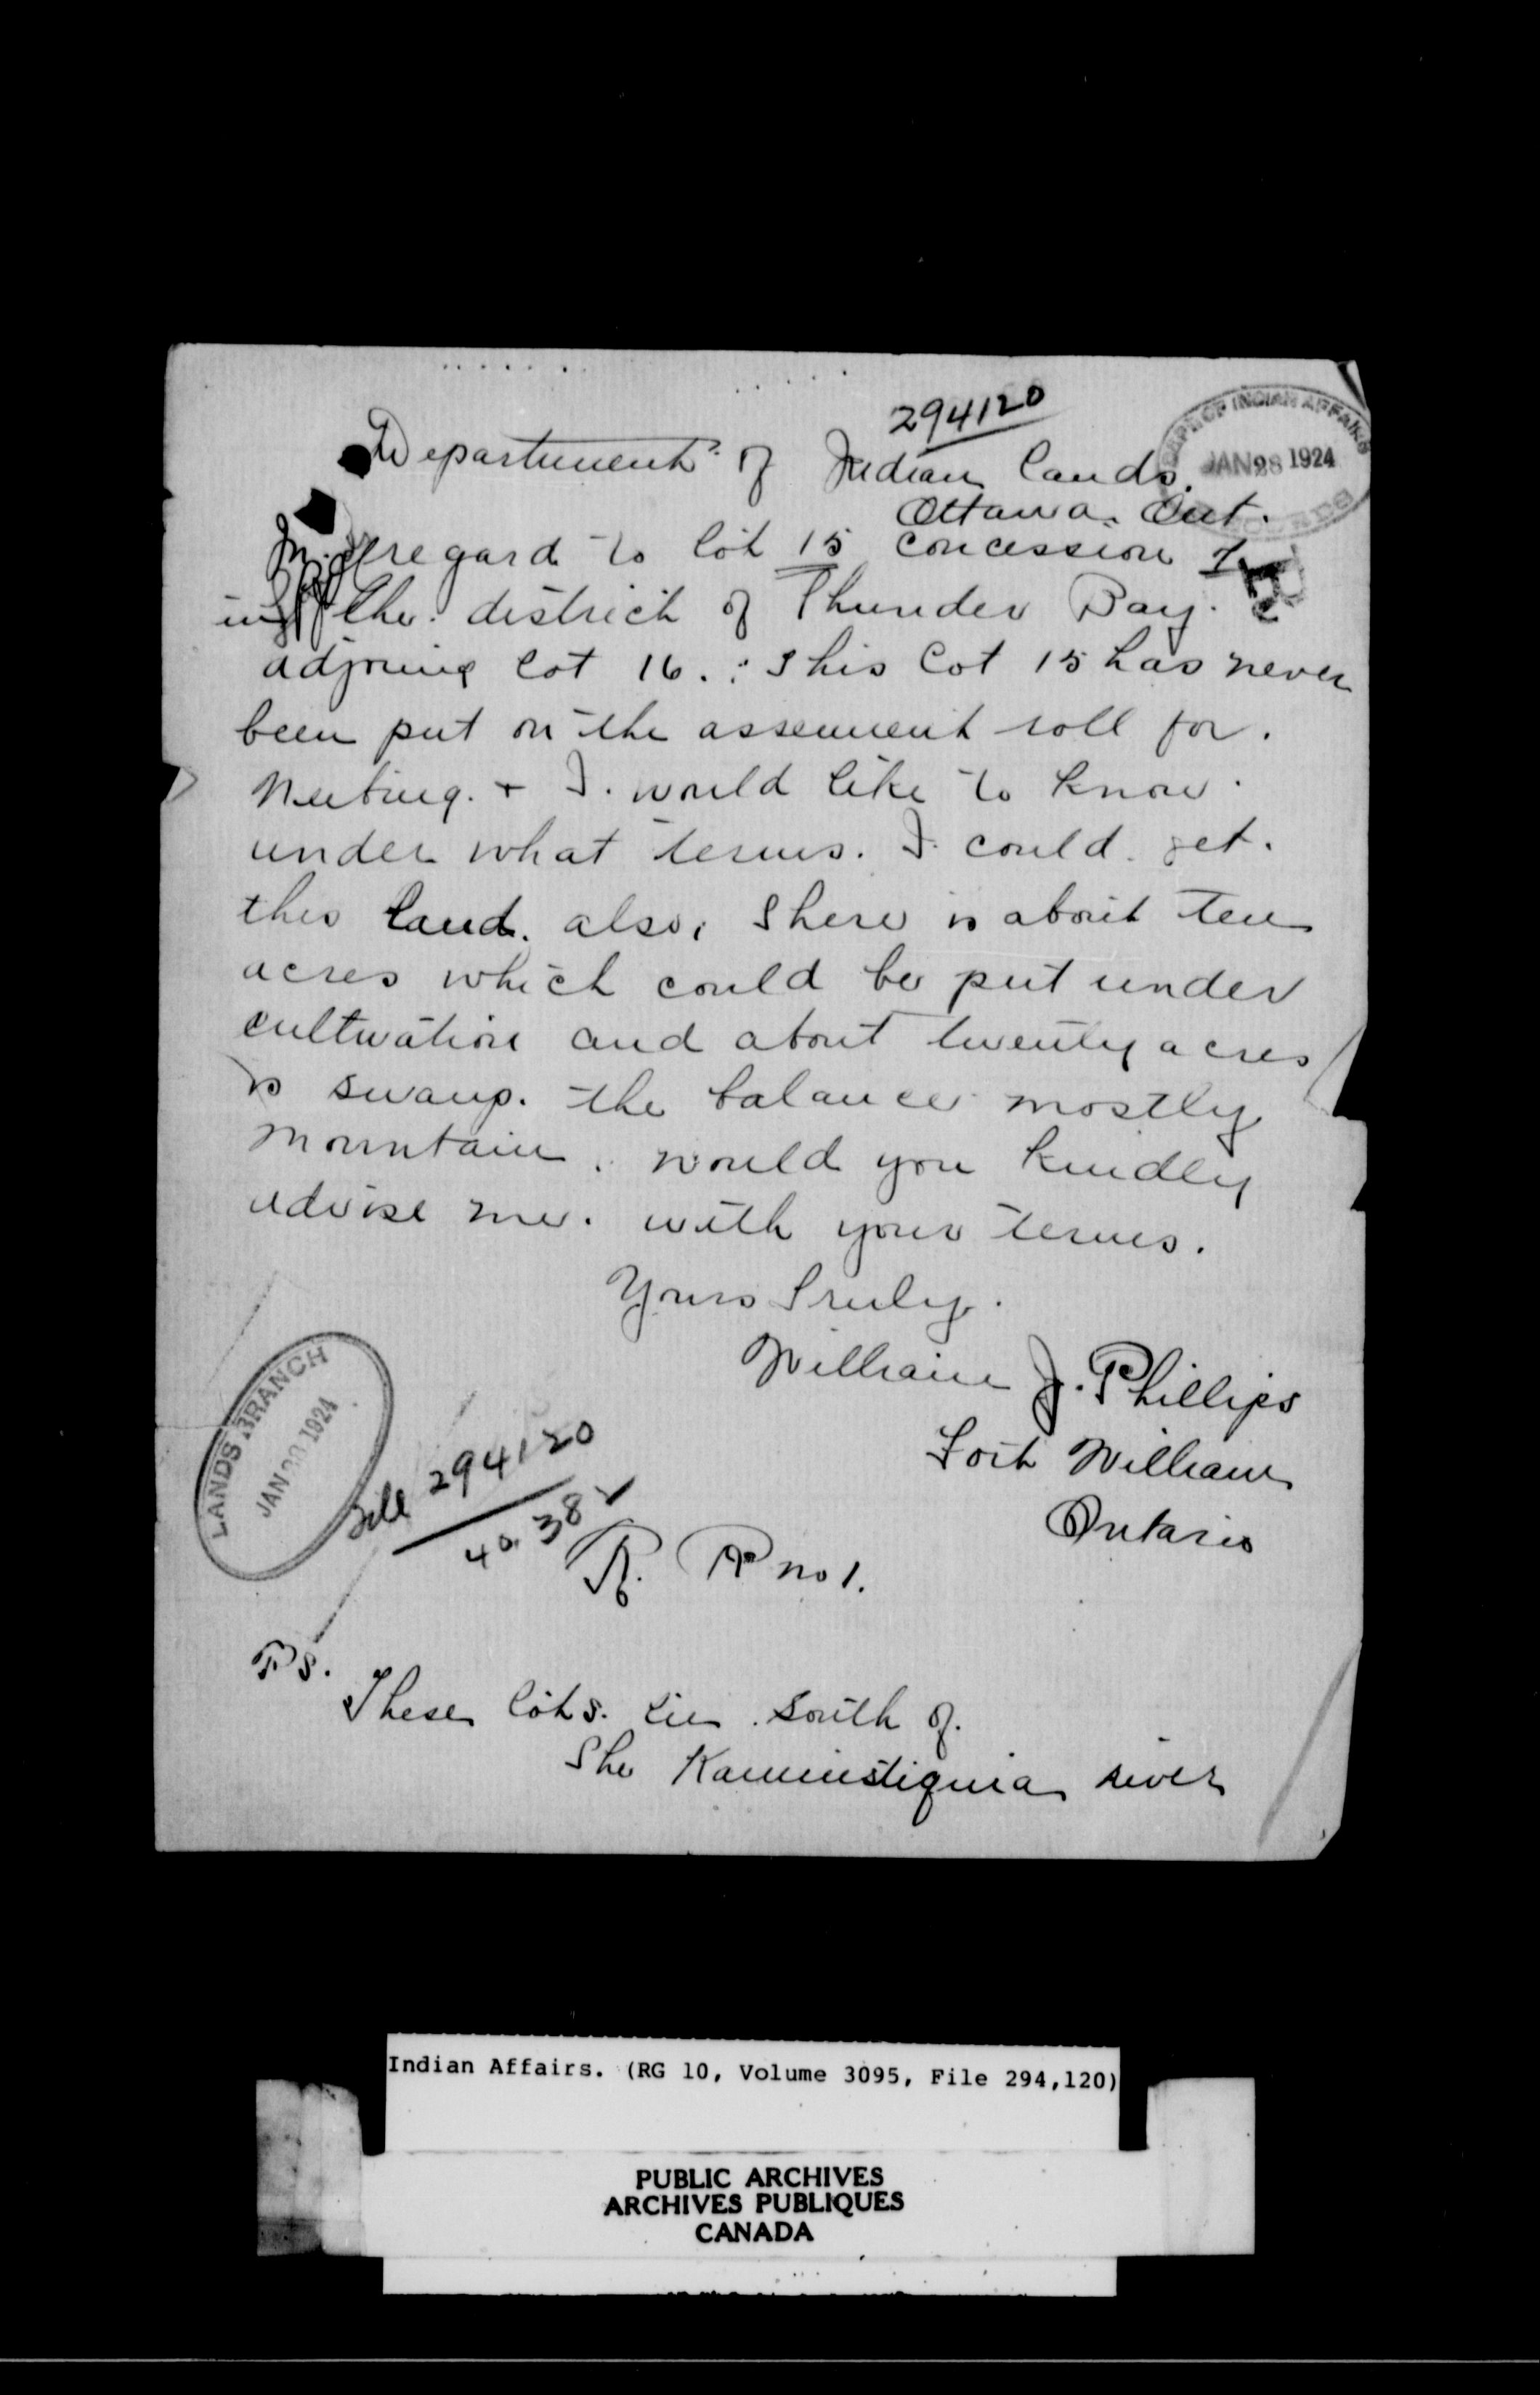 294120
DEPT OF INDIAN AFFAIRS
JAN 28 1924
RECORDS
Department of Indian Lands.
Ottawa. Ont.
In regard to lot 15 concession 1
in the district of Thunder Bay.
adjoining Lot 16. This Lot 15 has never
been put on the assessment roll for.
Neebing. + I. would like to know.
under what terms. I. could. get.
this land. also, There is about ten
acres which could be put under
cultivation and about twenty acres
is swamp. the balance mostly
mountain. would you kindly
advise me. with your terms.
Yours Truly.
William J. Phillips
Fort William
Ontario
LANDS BRANCH
JAN 30 1924
File 294120
40382
R. R no 1.
P.S.
These lots. lie. south of.
The Kaministiquia river
Indian Affairs. (RG 10, Volume 3095, File 294,120)
PUBLIC ARCHIVES
ARCHIVES PUBLIQUES
CANADA